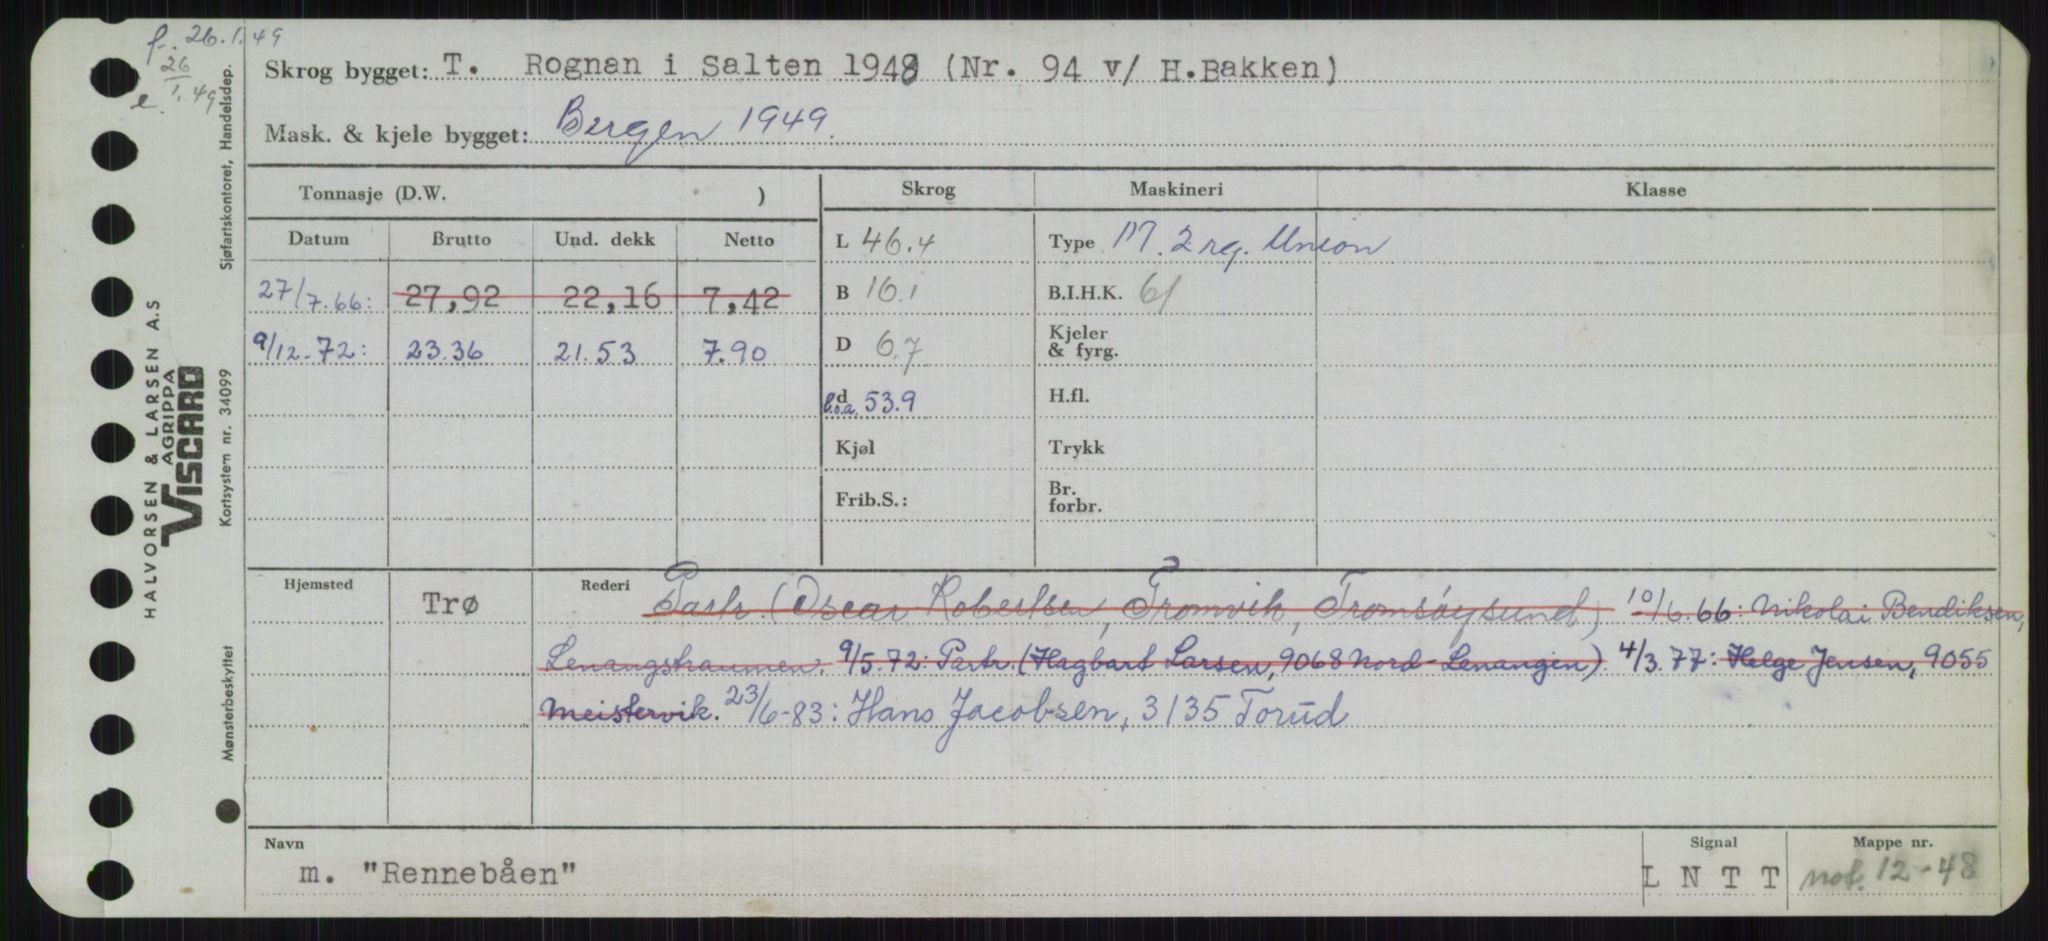 f. 26.1.49
26
e. 1.49
Skrog bygget: T. Rognan i Salten 1948 (Nr. 94 v/ H.Bakken)
Mask. & kjele bygget: Bergen 1949.
Tonnasje (D.W. ) Skrog Maskineri Klasse
Datum Brutto Und. dekk Netto L 46.4 Type M. 2 rg. Union
27/7.66: 27,92 22,16 7,42 B 16.1 B.I.H.K. 61
9/12-72: 23.36 21.53 7.90 D 6.7 Kjeler & fyrg.
d l.o.a. 53.9 H.fl.
Kjøl Trykk
Frib.S.: Br. forbr.
Hjemsted Trø Rederi Partr. (Oscar Robertsen, Tromvik, Tromsøysund) 10/6.66: Nikolai Bendiksen,
Lenangstraumen. 9/5.72: Partr. (Hagbart Larsen, 9068 Nord-Lenangen). 4/3.77: Helge Jensen, 9055
Meistervik. 23/6-83: Hans Jacobsen, 3135 Torød
Navn Signal Mappe nr.
m. "Rennebåen" L N T T nof. 12-48
HALVORSEN & LARSEN A.S
AGRIPPA
VISCARD
Kortsystem nr. 34099
Sjøfartskontoret, Handelsdep.
Mønsterbeskyttet